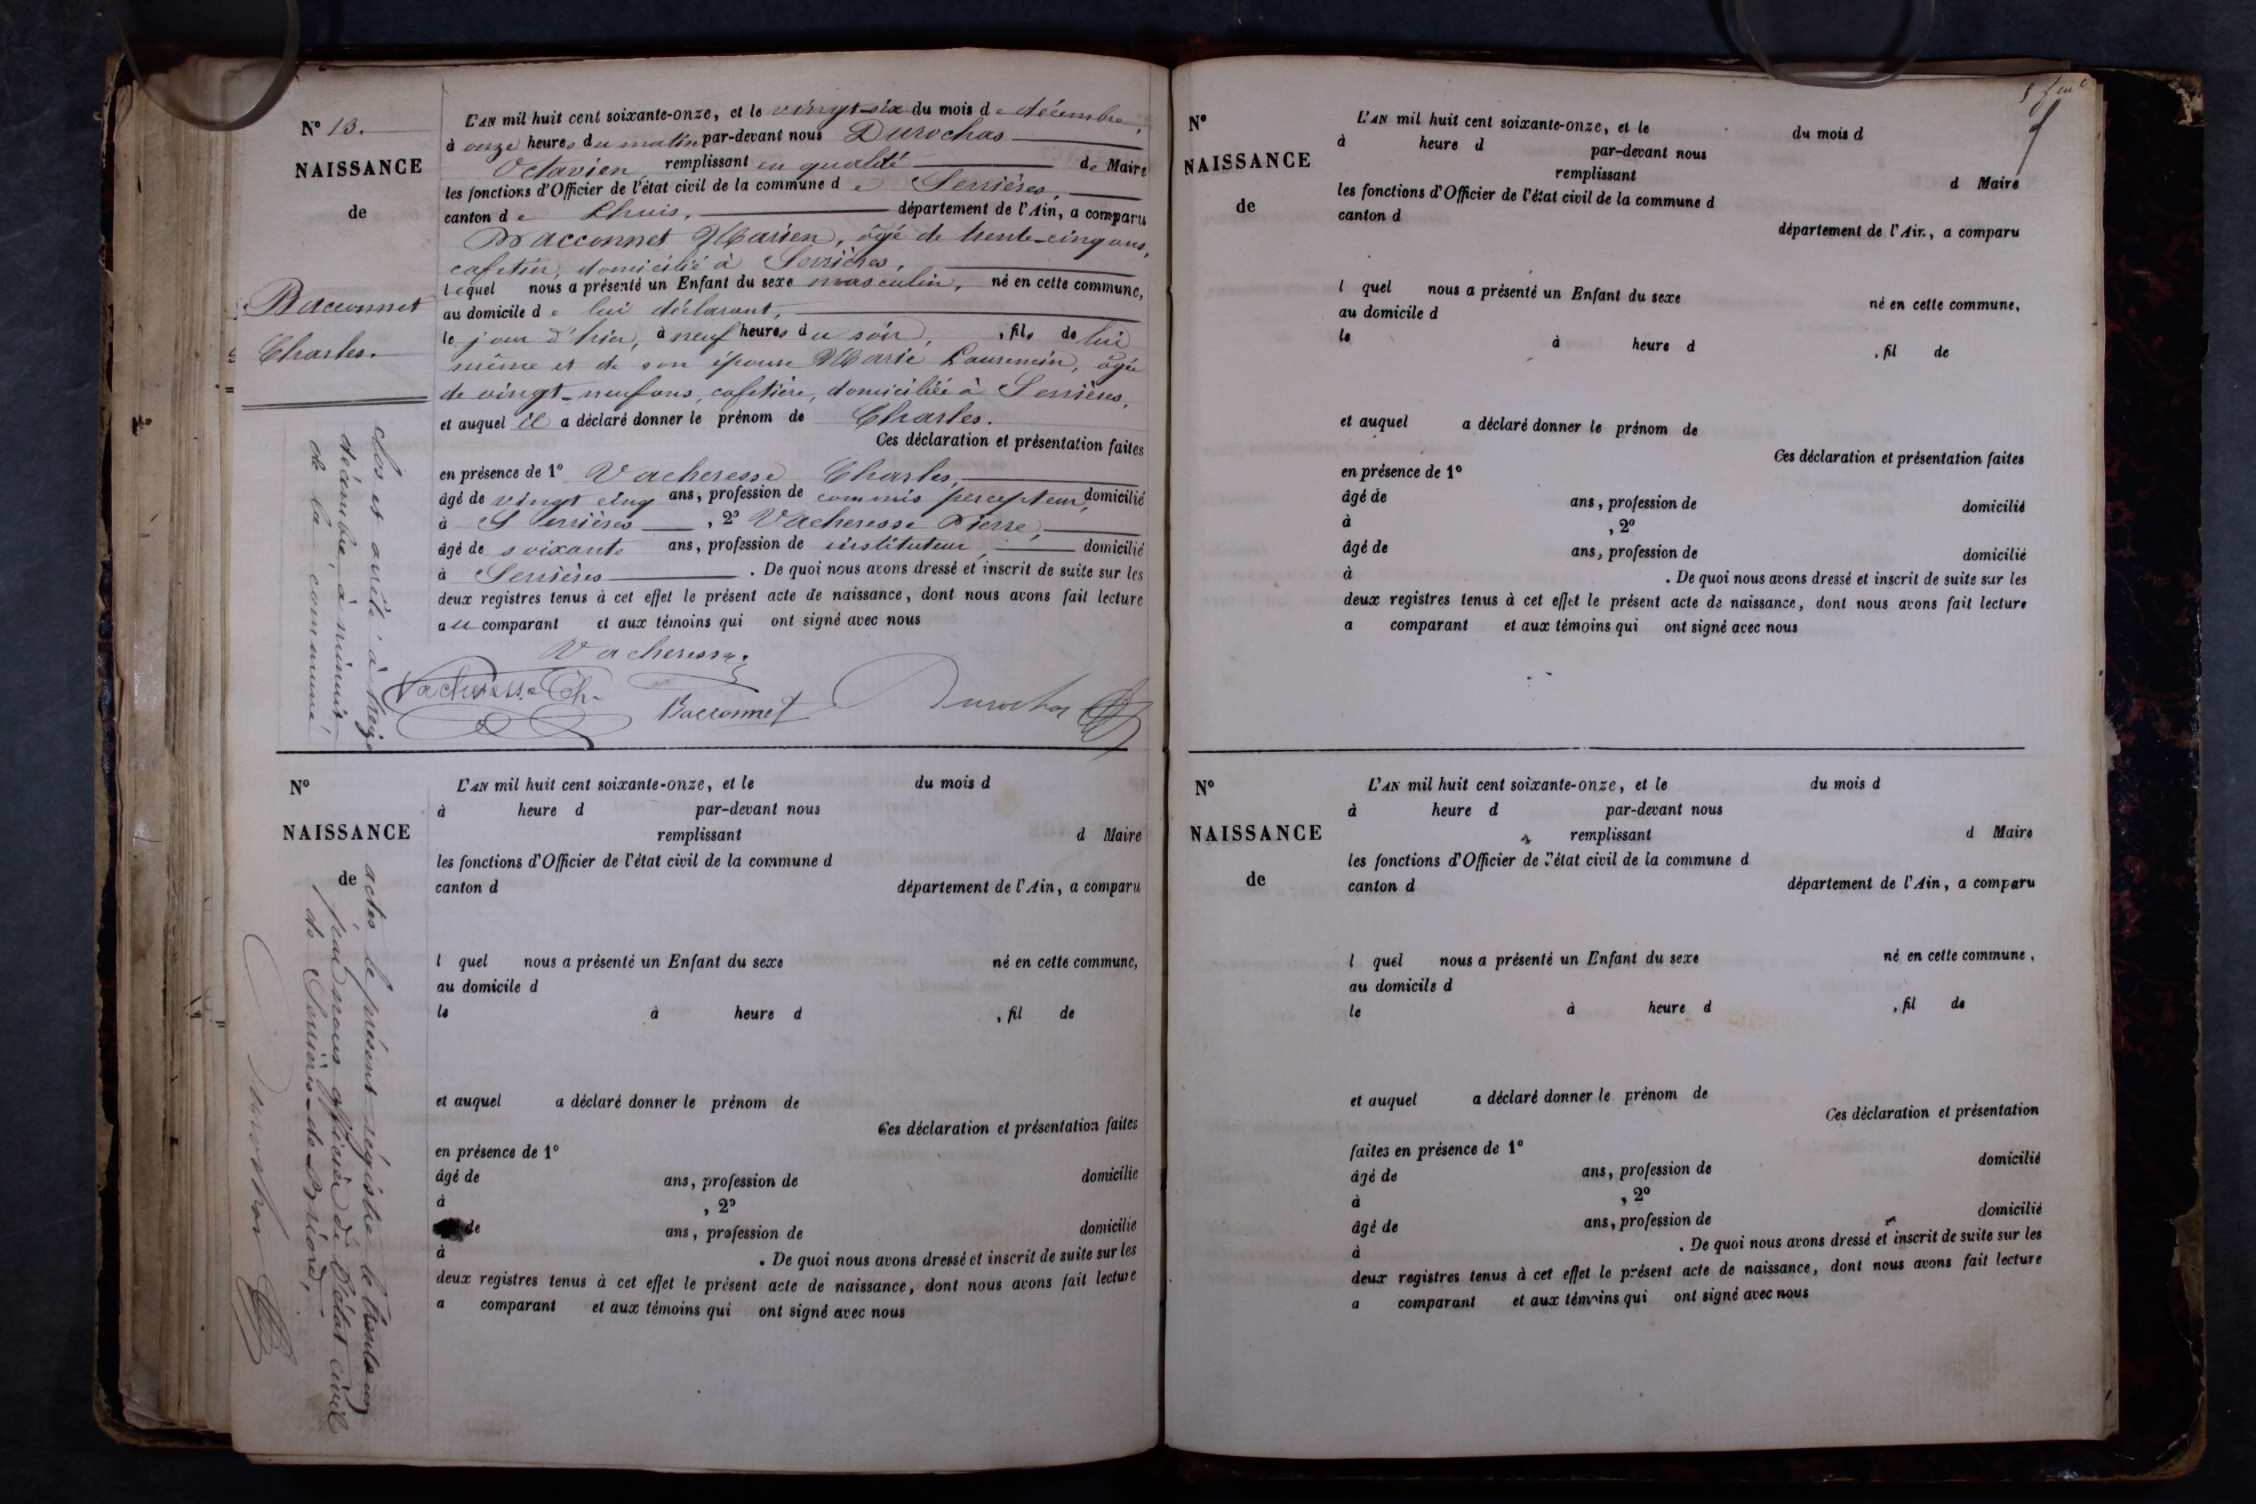 N° 13.
NAISSANCE
de
Bacconnet
Charles.
L'AN mil huit cent soixante-onze, et le vingt-six du mois de décembre,
à onze heures du matin par-devant nous Durochas
Octavien, remplissant en qualité de Maire
les fonctions d'Officier de l'état civil de la commune de Serrières,
canton de Lhuis, département de l'Ain, a comparu
Bacconnet Marien, âgé de trente-cinq ans,
cafetier, domicilié à Serrières,
lequel nous a présenté un Enfant du sexe masculin, né en cette commune,
au domicile de lui déclarant,
le jour d'hier, à neuf heures du soir, , fils de lui
même et de son épouse Marie Laurencin, âgée
de vingt-neuf ans, cafetière, domiciliée à Serrières,
et auquel il a déclaré donner le prénom de Charles.
Ces déclaration et présentation faites
en présence de 1° Vacheresse Charles,
âgé de vingt cinq ans, profession de commis percepteur, domicilié
à Serrières , 2° Vacheresse Pierre,
âgé de soixante ans, profession de instituteur, domicilié
à Serrières . De quoi nous avons dressé et inscrit de suite sur les
deux registres tenus à cet effet le présent acte de naissance, dont nous avons fait lecture
au comparant et aux témoins qui ont signé avec nous
Vacheresse
Vacheresse Ch.
Bacconnet
Durochas
clos et arrêté à treize
actes le présent registre le trente un
décembre, à minuit,
par nous officier de l'état civil
de la commune,
de Serrières-de-Briord,
Durochas
N°
NAISSANCE
de
L'AN mil huit cent soixante-onze, et le du mois d
à heure d par-devant nous
remplissant d Maire
les fonctions d'Officier de l'état civil de la commune d
canton d département de l'Ain, a comparu
l quel nous a présenté un Enfant du sexe né en cette commune,
au domicile d
le à heure d , fil de
et auquel a déclaré donner le prénom de
Ces déclaration et présentation faites
en présence de 1°
âgé de ans, profession de domicilié
à , 2°
de ans, profession de domicilié
à . De quoi nous avons dressé et inscrit de suite sur les
deux registres tenus à cet effet le présent acte de naissance, dont nous avons fait lecture
a comparant et aux témoins qui ont signé avec nous
N°
NAISSANCE
de
L'AN mil huit cent soixante-onze, et le du mois d
à heure d par-devant nous
remplissant d Maire
les fonctions d'Officier de l'état civil de la commune d
canton d département de l'Ain, a comparu
l quel nous a présenté un Enfant du sexe né en cette commune,
au domicile d
le à heure d , fil de
et auquel a déclaré donner le prénom de
Ces déclaration et présentation faites
en présence de 1°
âgé de ans, profession de domicilié
à , 2°
âgé de ans, profession de domicilié
à . De quoi nous avons dressé et inscrit de suite sur les
deux registres tenus à cet effet le présent acte de naissance, dont nous avons fait lecture
a comparant et aux témoins qui ont signé avec nous
N°
NAISSANCE
de
L'AN mil huit cent soixante-onze, et le du mois d
à heure d par-devant nous
remplissant d Maire
les fonctions d'Officier de l'état civil de la commune d
canton d département de l'Ain, a comparu
l quel nous a présenté un Enfant du sexe né en cette commune,
au domicile d
le à heure d , fil de
et auquel a déclaré donner le prénom de
Ces déclaration et présentation
faites en présence de 1°
âgé de ans, profession de domicilié
à , 2°
âgé de ans, profession de domicilié
à . De quoi nous avons dressé et inscrit de suite sur les
deux registres tenus à cet effet le présent acte de naissance, dont nous avons fait lecture
a comparant et aux témoins qui ont signé avec nous